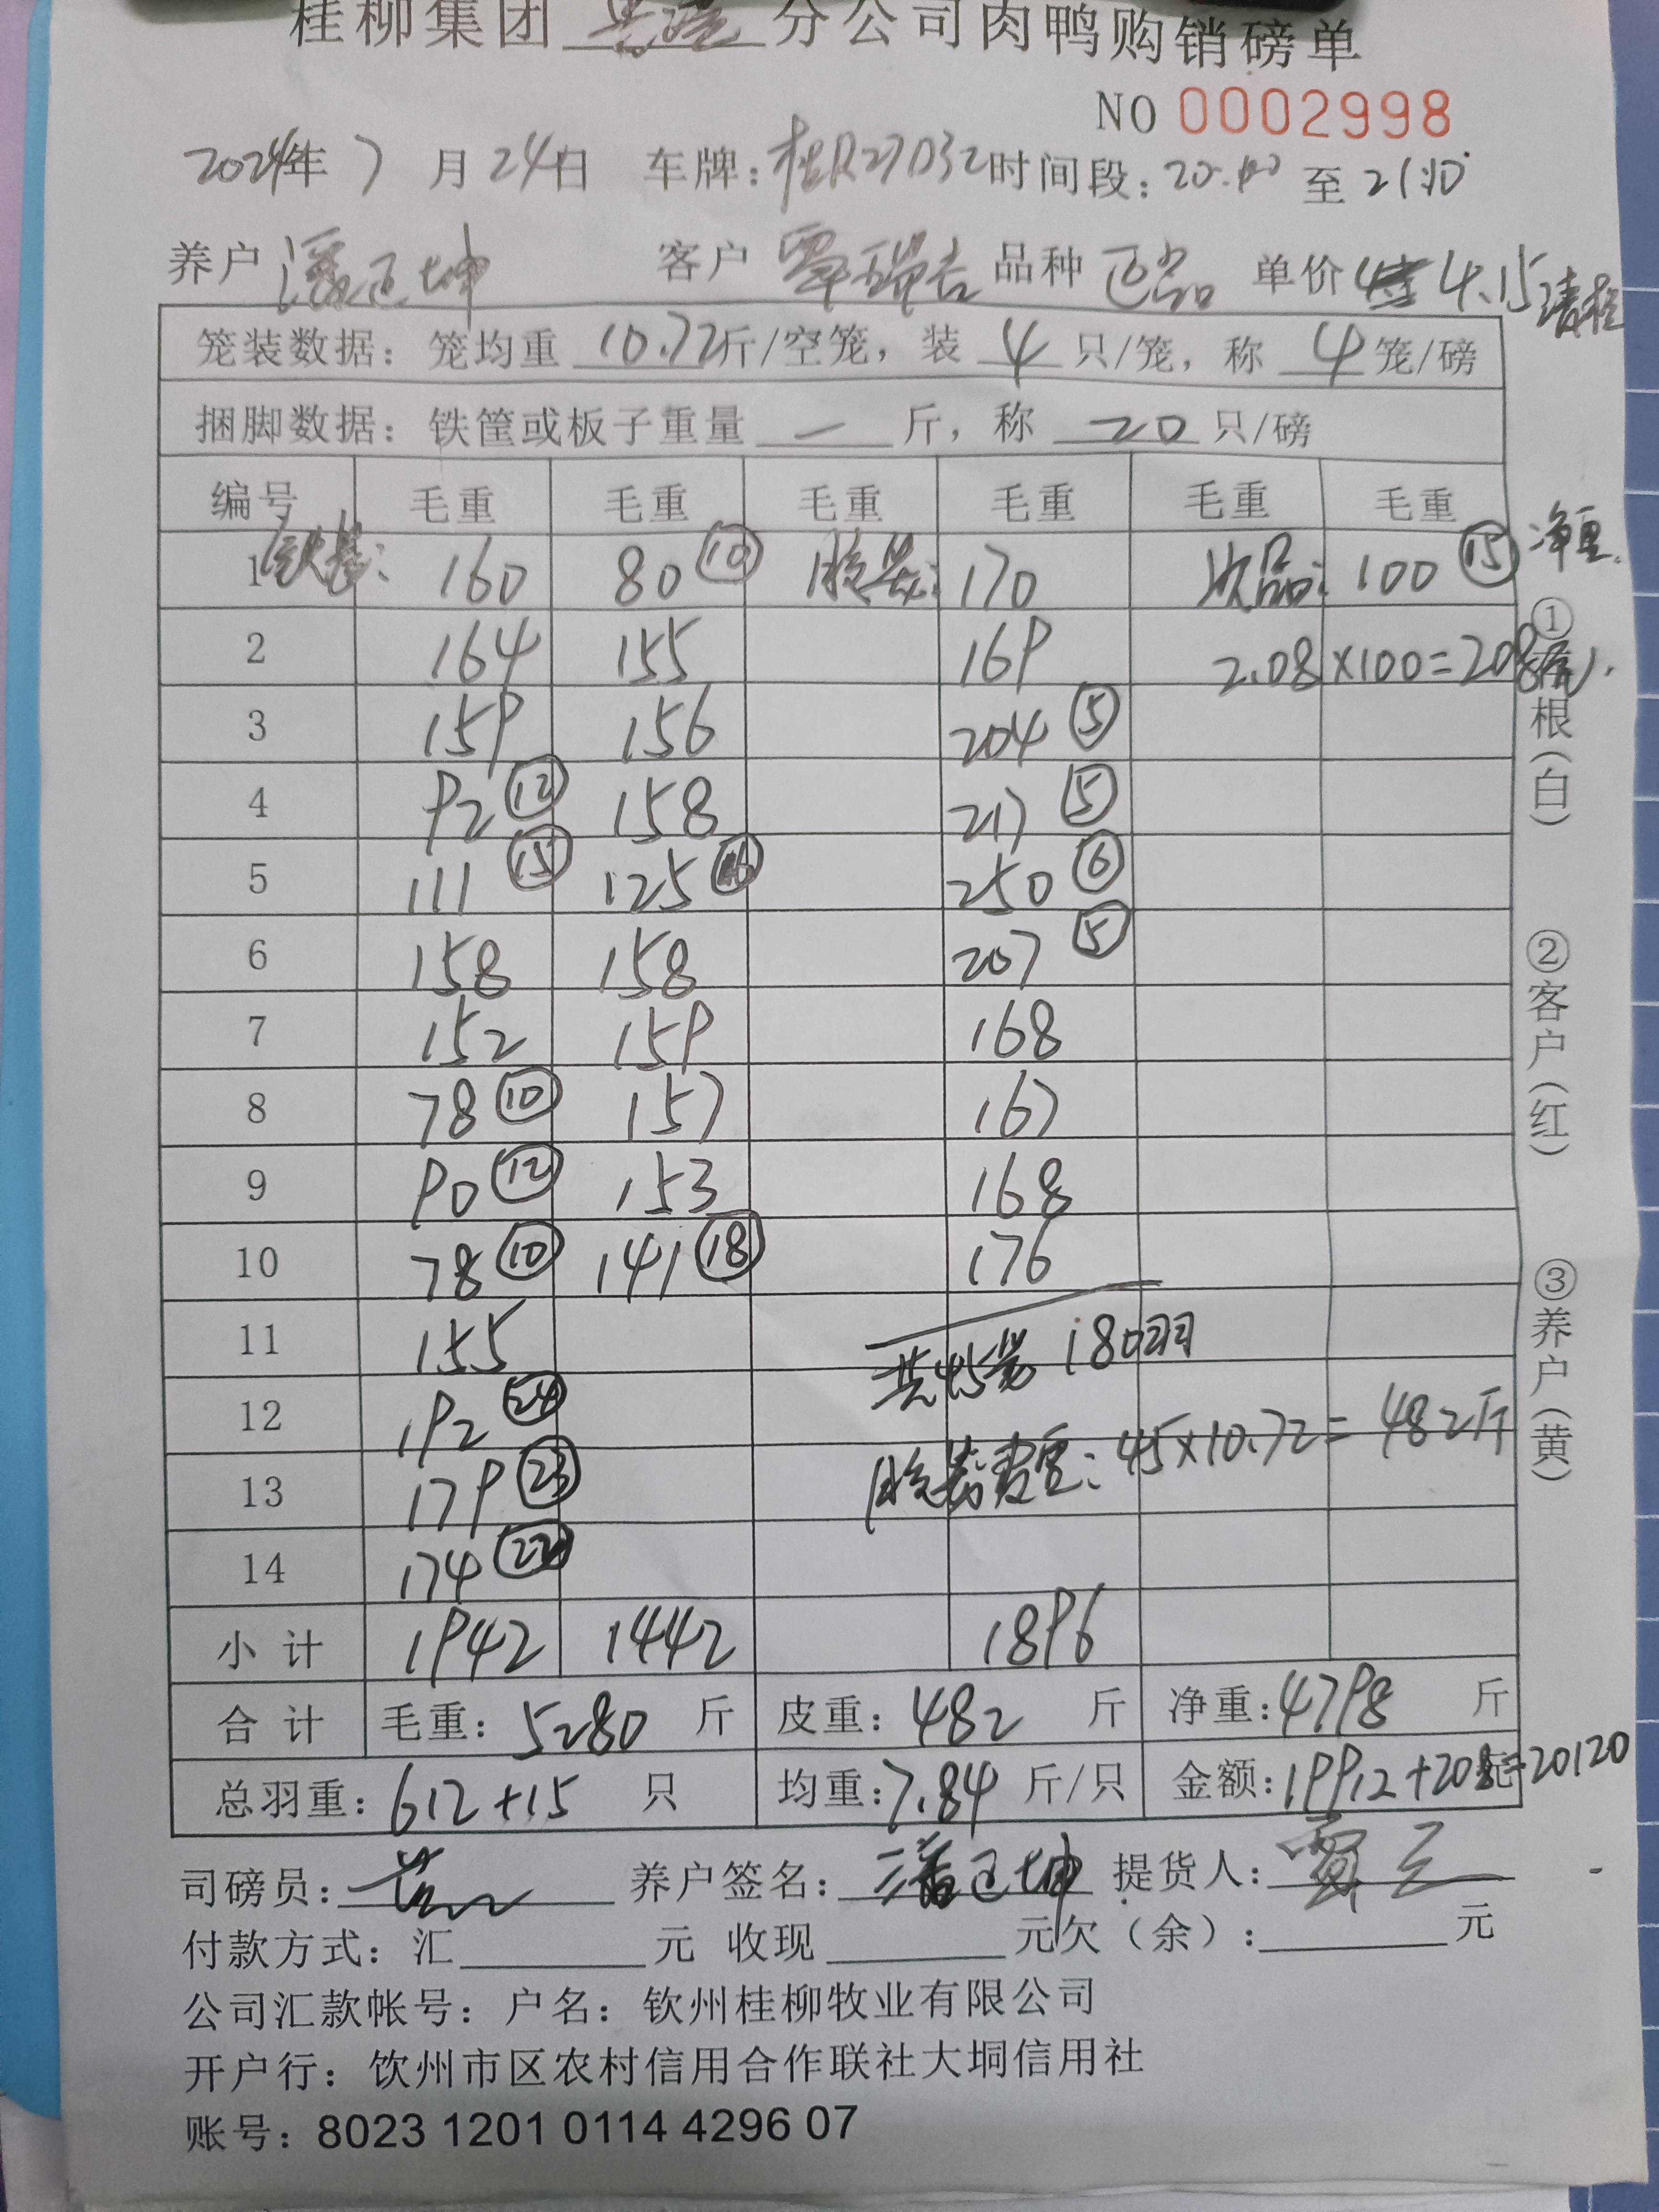 桂柳集团 分公司肉鸭购销磅单
NO 0002998
2024年 7 月 24日 车牌:桂R27D32 时间段:20:40 至 21:10
养户 潘远坤 客户 覃瑞吉 品种 正品 单价 4.15
笼装数据: 笼均重 10.72 斤/空笼, 装 4 只/笼, 称 4 笼/磅
捆脚数据: 铁筐或板子重量 一 斤, 称 20 只/磅
编号 毛重 毛重 毛重 毛重 毛重 毛重
1 铁笼: 160 80 ⑩ 胶笼: 170 次品: 100 ⑮ 净重
2 164 155 169 2.08×100=208元
3 159 156 204 ⑤
4 92 ⑫ 158 217 ⑤
5 111 ⑮ 125 ⑯ 250 ⑥
6 158 158 207 ⑤
7 152 159 168
8 78 ⑩ 157 167
9 90 ⑫ 153 168
10 78 ⑩ 141 ⑱ 176
11 155 共45笼 180羽
12 192 ㉔
13 179 ㉓ 胶笼皮重: 45×10.72=482斤
14 174 ㉒
小 计 1942 1442 1896
合 计 毛重: 5280 斤 皮重: 482 斤 净重: 4798 斤
总羽重: 612+15 只 均重: 7.84 斤/只 金额: 19912+208=20120
司磅员: 养户签名: 潘远坤 提货人:
付款方式: 汇 元 收现 元欠（余）: 元
公司汇款帐号: 户名: 钦州桂柳牧业有限公司
开户行: 钦州市区农村信用合作联社大垌信用社
账号: 8023 1201 0114 4296 07
①存根(白)
②客户(红)
③养户(黄)